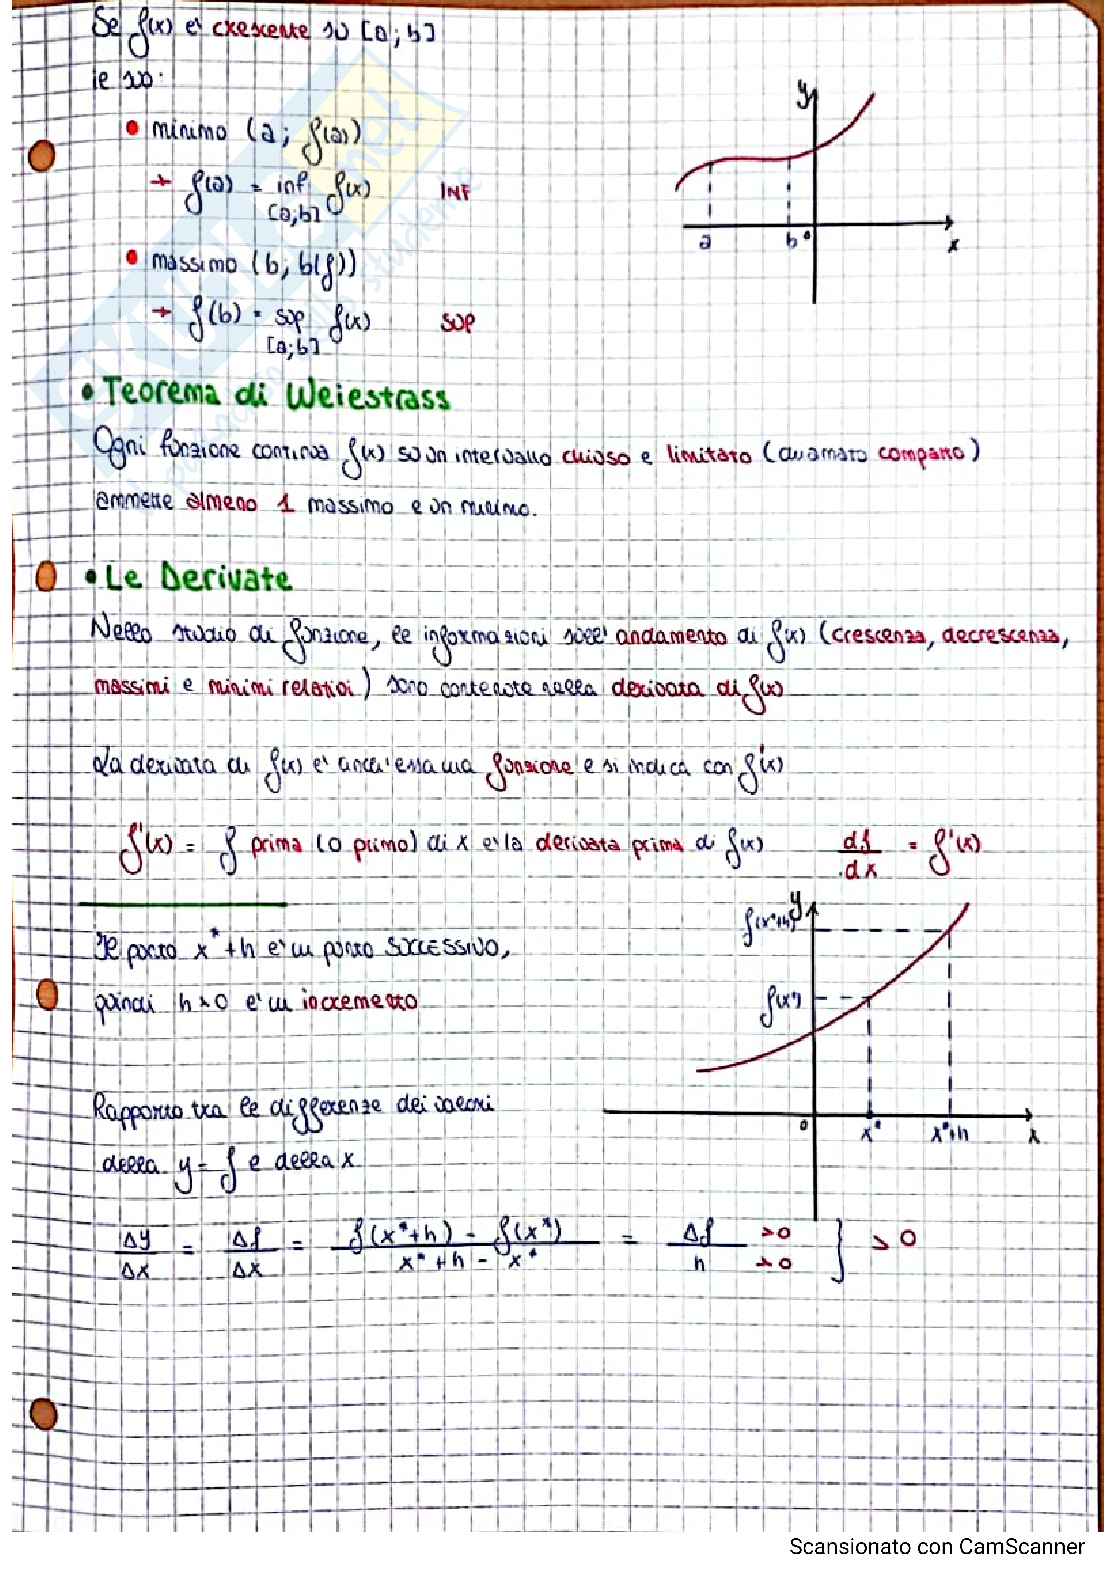 Se f(x) e' crescente su [a; b]
le suo:
• minimo (a; f(a))
→ f(a) = inf f(x) INF
[a;b]
• massimo (b; b(f))
→ f(b) = sup f(x) SUP
[a;b]
y
a b o x
• Teorema di Weiestrass
Ogni funzione continua f(x) su un intervallo chiuso e limitato (chiamato compatto)
ammette almeno 1 massimo e un minimo.
• Le Derivate
Nello studio di funzione, le informazioni sull'andamento di f(x) (crescenza, decrescenza,
massimi e minimi relativi) sono contenute nella derivata di f(x)
La derivata di f(x) e' anch'essa una funzione e si indica con f'(x)
f'(x) = f prima (o primo) di x e' la derivata prima di f(x) df/dx = f'(x)
Il punto x*+h e' un punto SUCCESSIVO,
quindi h>0 e' un incremento
y
f(x*+h)
f(x*)
o x* x*+h x
Rapporto tra le differenze dei valori
della y=f e della x
Δy/Δx = Δf/Δx = f(x*+h) - f(x*) / x*+h - x* = Δf/h >0 >0 } > 0
Scansionato con CamScanner